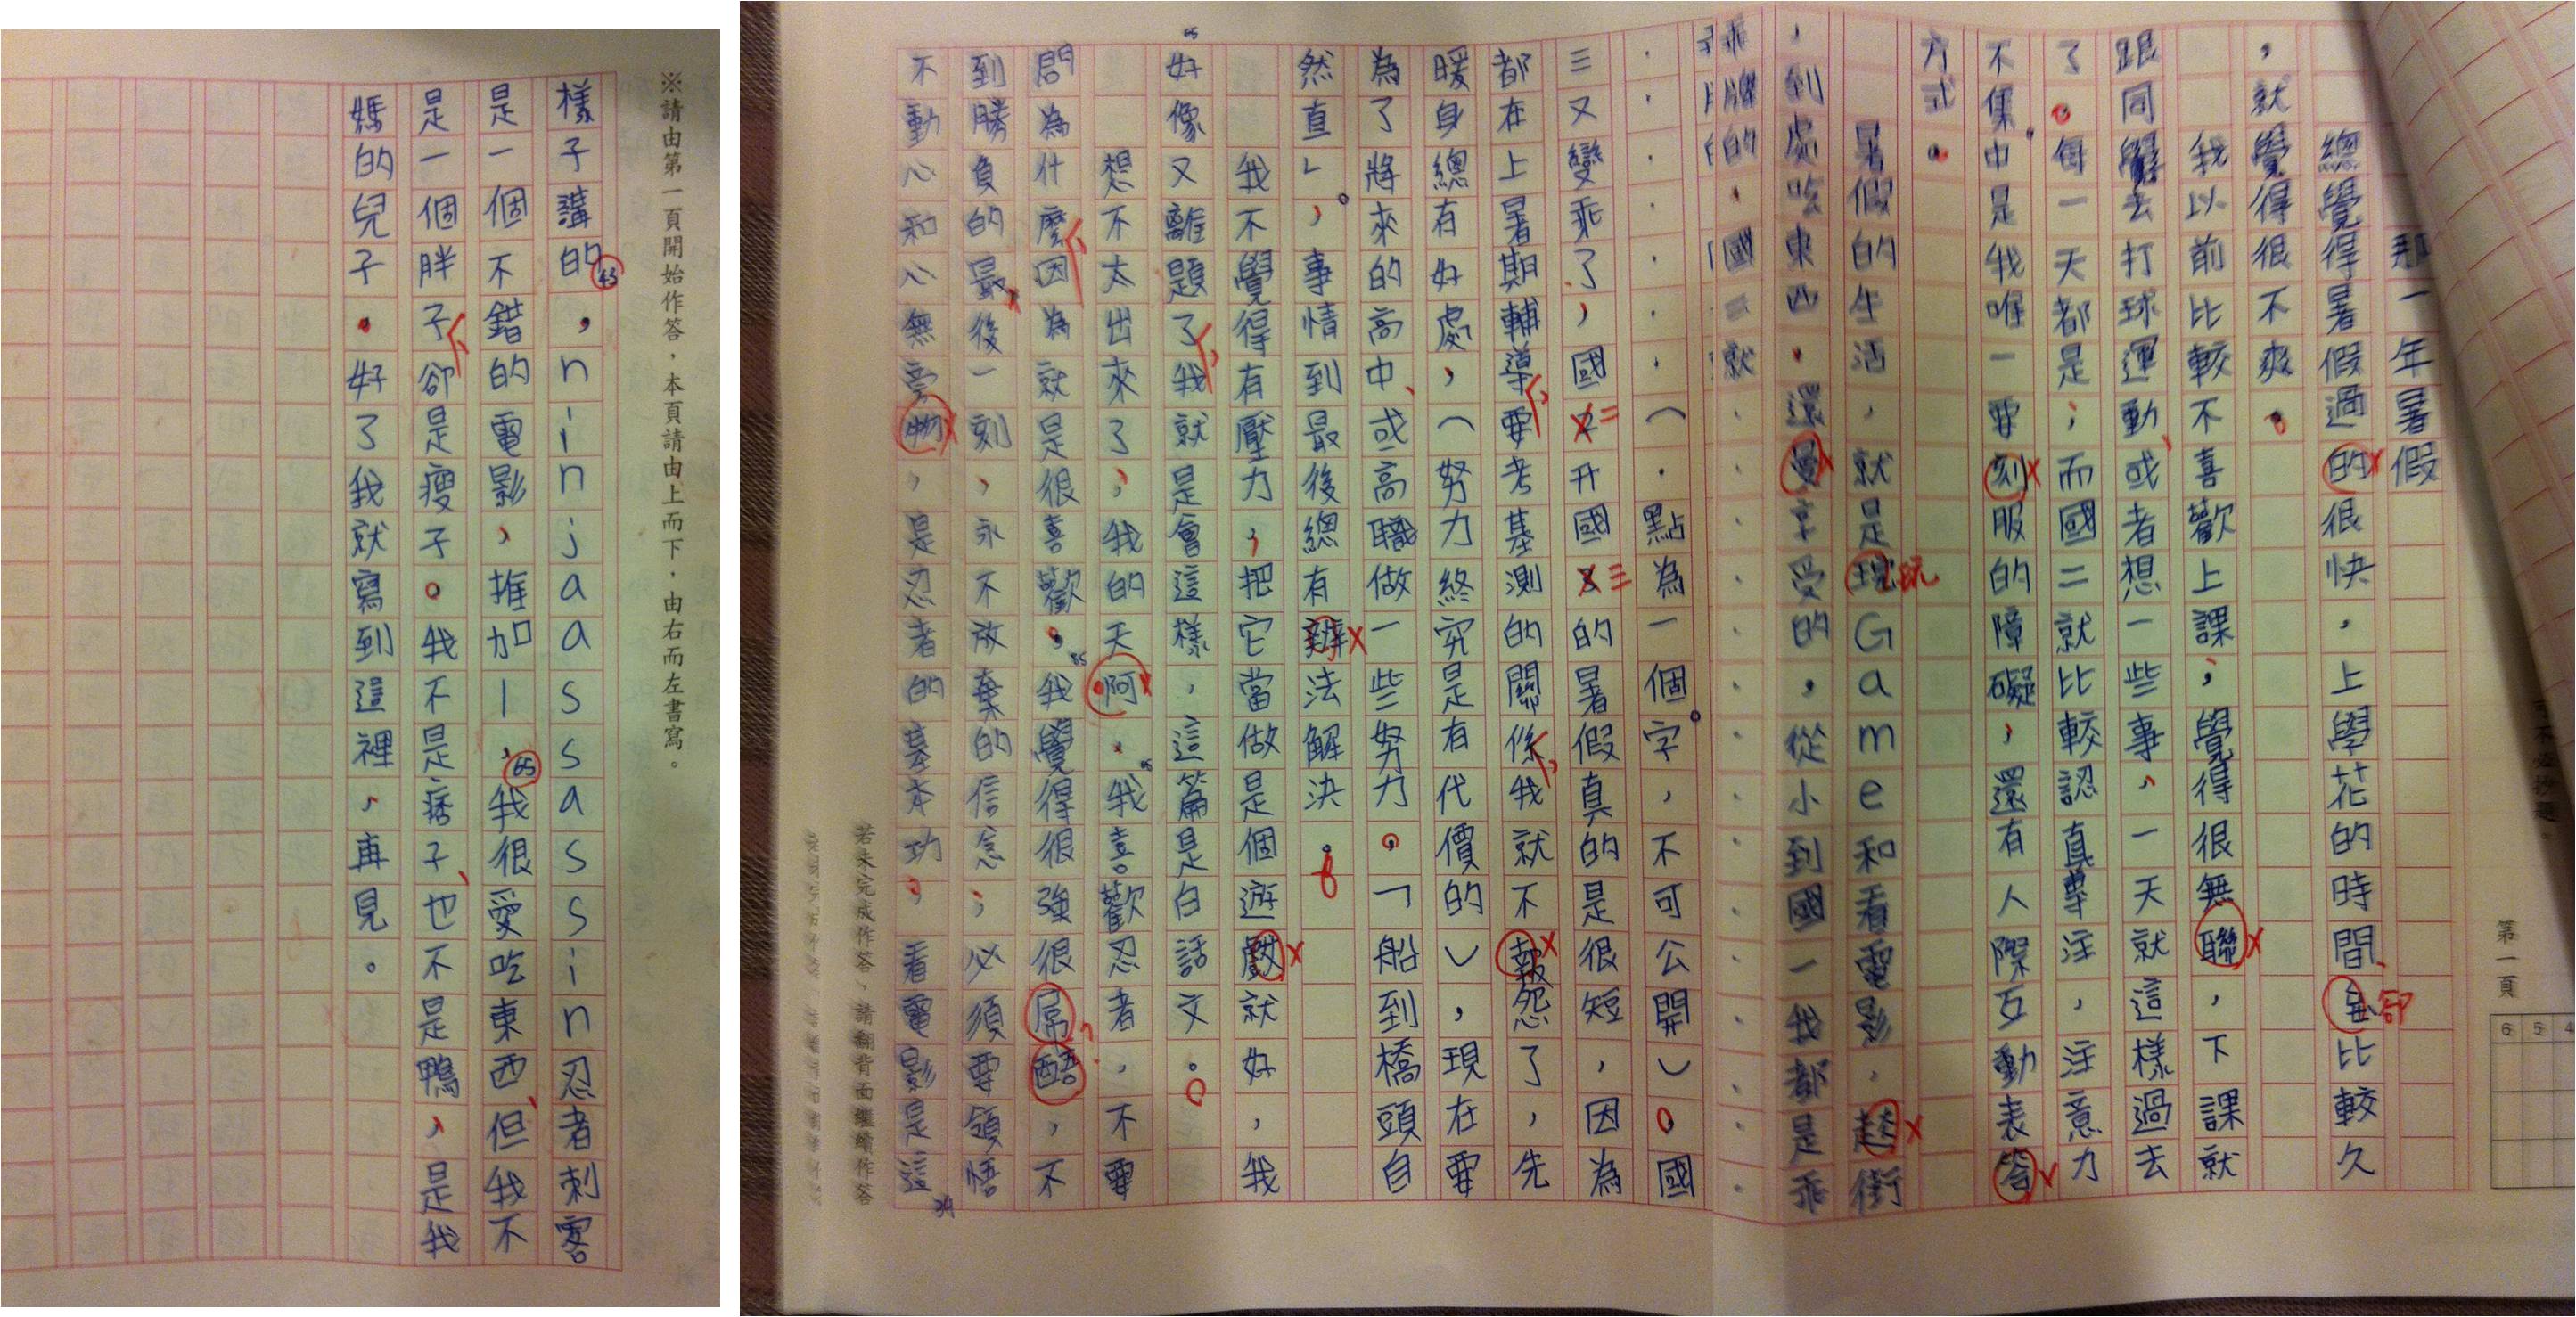 那一年暑假
總覺得暑假過的很快,上學花的時間、缷比較久
,就覺得很不爽。
我以前比較不喜歡上課,覺得很無聯,下課就
跟同學去打球運動、或者想一些事,一天就這樣過去
了。每一天都是;而國二就比較認真專注,注意力
不集中是我唯一要刻服的障礙,還有人際互動表答
方式。
暑假的生活,就是現Game和看電影,趁街
,到處吃東西,還享受的,從小到國一我都是乖
乖牌的,國三就......
......(.點為一個字,不可公開)。國
三又變乖了,國二升國三的暑假真的是很短,因為
都在上暑期輔導要考基測的關係我就不報怨了,先
暖身總有好處,(努力終究是有代價的),現在要
為了將來的高中、或高職做一些努力。「船到橋頭自
然直」,事情到最後總有辦法解決。
我不覺得有壓力,把它當做是個遊戲就好,我
好像又離題了我就是會這樣,這篇是白話文。
想不太出來了,我的天啊,我喜歡忍者,不要
問為什麼因為就是很喜歡,我覺得很強很屌酷,不
到勝負的最後一刻,永不放棄的信念;必須要領悟
不動心和心無旁物,是忍者的基本功,看電影是這
※請由第一頁開始作答,本頁請由上而下,由右而左書寫。
樣子講的,ninjaassassin忍者刺客
是一個不錯的電影,推加1,我很愛吃東西、但我不
是一個胖子卻是瘦子。我不是痞子、也不是鴨,是我
媽的兒子。好了我就寫到這裡,再見。
第一頁
若未完成作答,請翻背面繼續作答